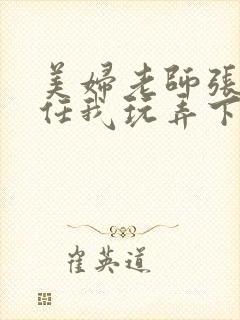 美婦老師張
任我玩弄下
崔英道